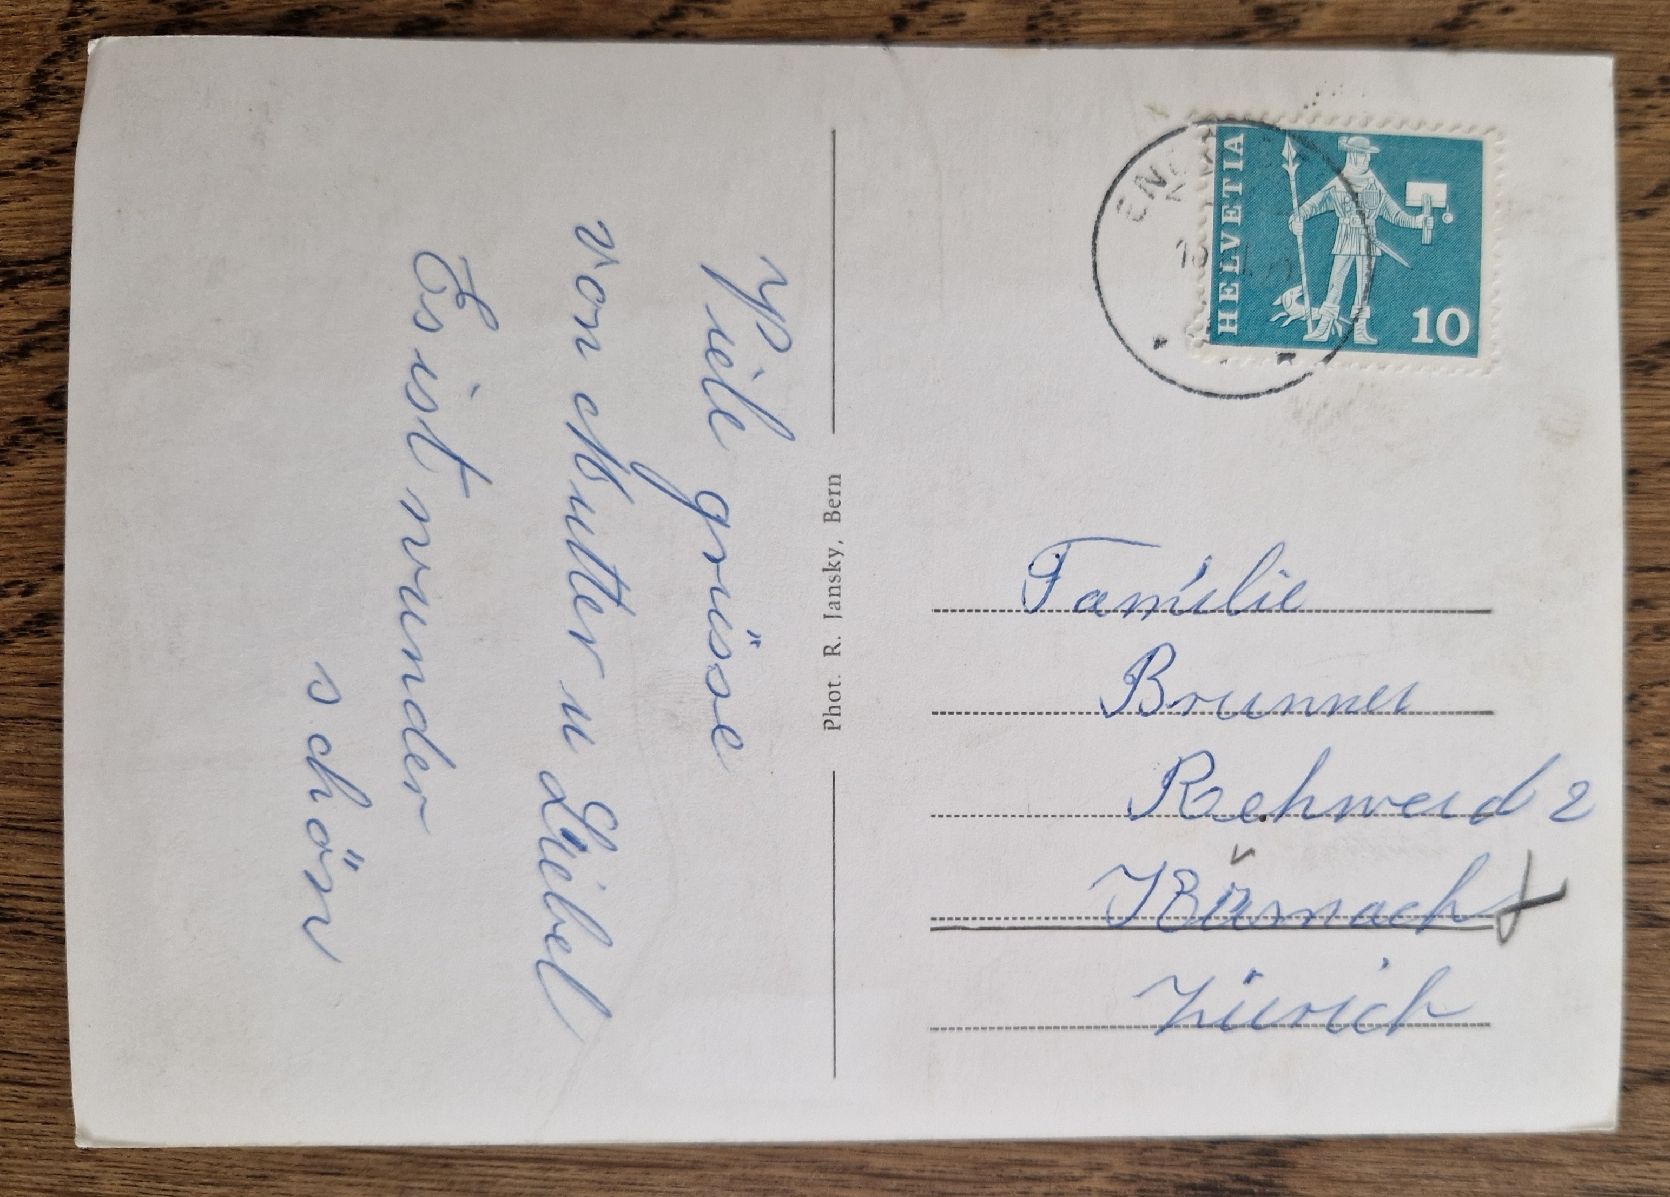 Viele grüsse
von Mutter u Liebel
Es ist wunder
schön
Phot. R. Jansky, Bern
HELVETIA
10
Familie
Brunner
Rehweid 2
Küsnacht
Zürich